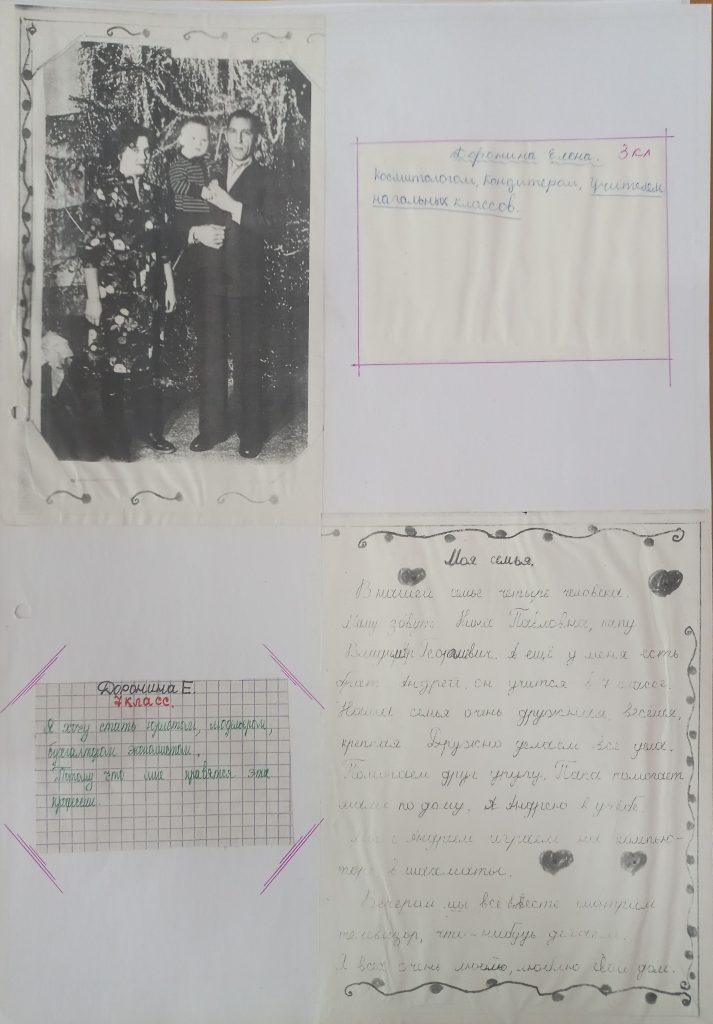 Доронина Елена. 3 кл
Косметологом, кондитером, учителем
начальных классов.
Доронина Е.
7 класс.
Я хочу стать юристом, модельером,
бухгалтером экономистом.
Потому что мне нравятся эти
професии.
Моя семья.
В нашей семье четыре человека.
Маму зовут Нина Павловна, папу
Владимир Георгиевич. А ещё у меня есть
брат Андрей, он учится в 7 классе.
Наша семья очень дружная, весёлая,
крепкая. Дружно делаем все дела.
Помогаем друг другу. Папа помогает
маме по дому. А Андрею к учёбе
Мы с Андреем играем на компью-
тере в шахматы.
Вечерами мы все вместе смотрим
телевизор, что-нибудь делаем.
Я всех очень люблю, люблю свой дом.